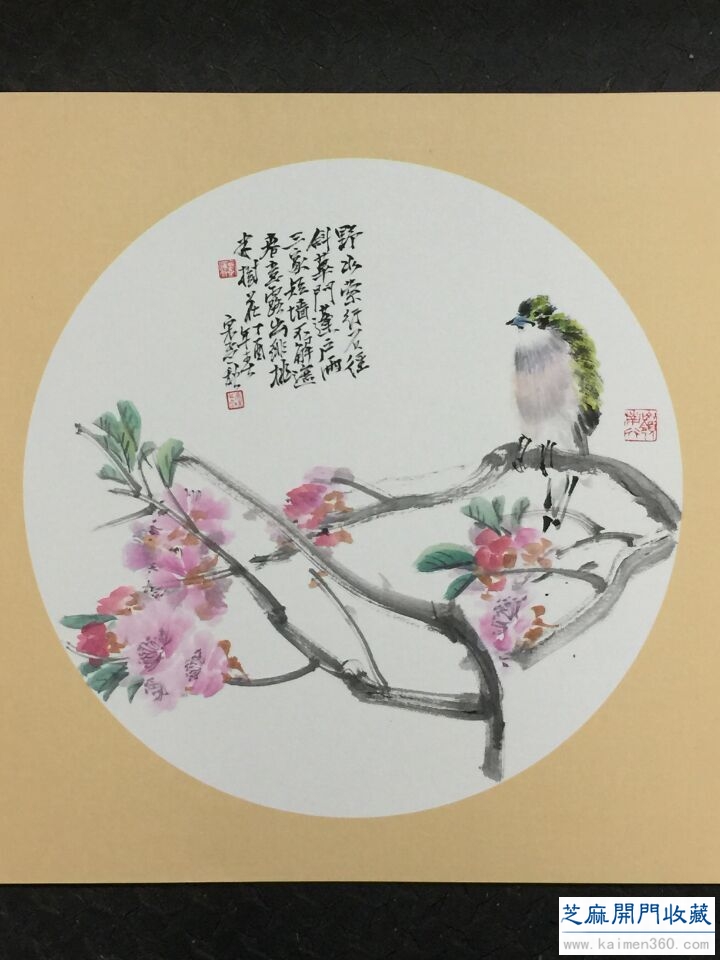 野水縈行石徑
斜蓽門蓬户兩
三家短墙不解遮
春意露出緋桃
半樹花 丁酉
年春
芝麻開門收藏
www.kaimen360.com